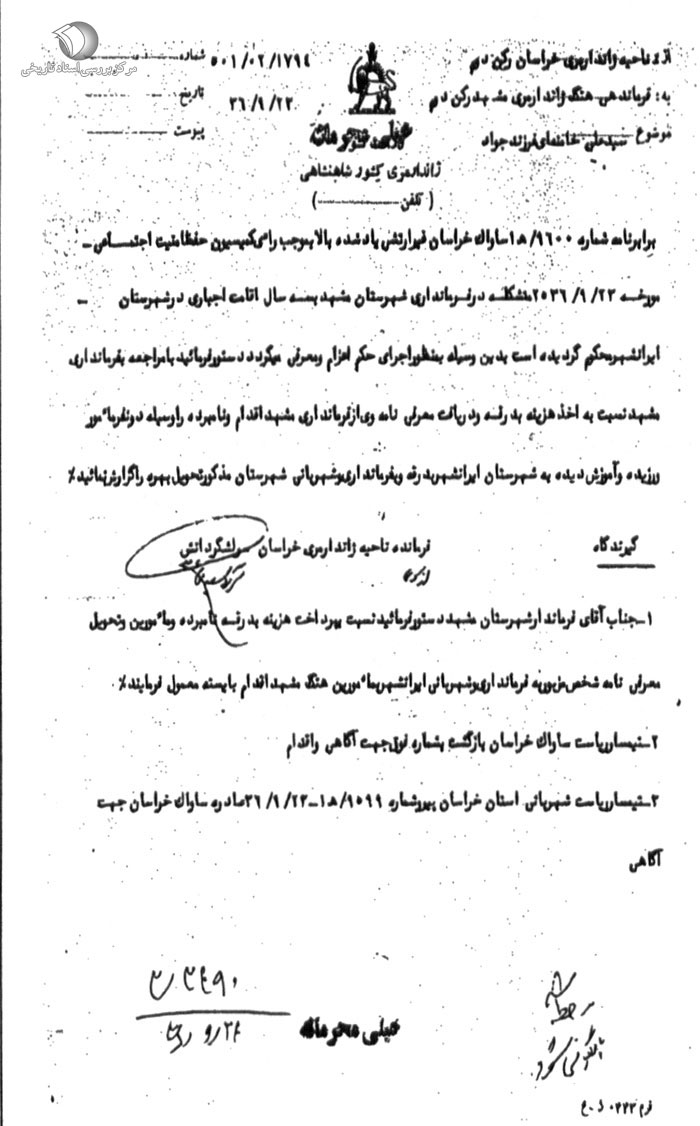 مرکز بررسی اسناد تاریخی
از: ناحیه ژاندارمری خراسان رکن دوم
به: فرماندهی هنگ ژاندارمری مشهد رکن دوم
موضوع سیدعلی خامنه‌ای فرزند جواد
شماره ۵۰۱/۰۲/۱۷۹۴
تاریخ ۳۶/۹/۲۳
پیوست
خیلی محرمانه
ژاندارمری کشور شاهنشاهی
(تلفن)
برابر نامه شماره ۹۶۰۰/ه۱ ساواک خراسان یاد شده بالا بموجب رای کمیسیون حفظ امنیت اجتماعی
مورخه ۲۰۳۶/۹/۲۳ متشکله در فرمانداری شهرستان مشهد بسه سال اقامت اجباری در شهرستان
ایرانشهر محکوم گردیده است بدین وسیله بمنظور اجرای حکم اعزام و معرفی میگردد دستور فرمائید با مراجعه بفرمانداری
مشهد نسبت به اخذ هزینه بدرقه و دریافت معرفی نامه وی از فرمانداری مشهد اقدام و نامبرده را وسیله دو نفر مامور
ورزیده و آموزش دیده به شهرستان ایرانشهر بدرقه و بفرمانداری و شهربانی شهرستان مذکور تحویل بهره را گزارش نمائید٪
فرمانده ناحیه ژاندارمری خراسان سرلشگر دانش
گیرندگاه
۱ـ جناب آقای فرماندار شهرستان مشهد دستور فرمائید نسبت بپرداخت هزینه بدرقه نامبرده و مامورین و تحویل
معرفی نامه شخص مزبور به فرمانداری و شهربانی ایرانشهر بمامورین هنگ مشهد اقدام بایسته معمول فرمایند٪
۲ـ تیمسار ریاست ساواک خراسان بازگشت بشماره فوق جهت آگاهی و اقدام
۳ـ تیمسار ریاست شهربانی استان خراسان پیرو شماره ۹۵۹۹/ه۱ـ۳۶/۹/۲۳ صادره ساواک خراسان جهت
آگاهی
خیلی محرمانه
بایگانی شود
فرم ۰۴۴۳